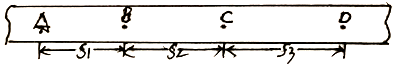 A B C D
S1 S2 S3